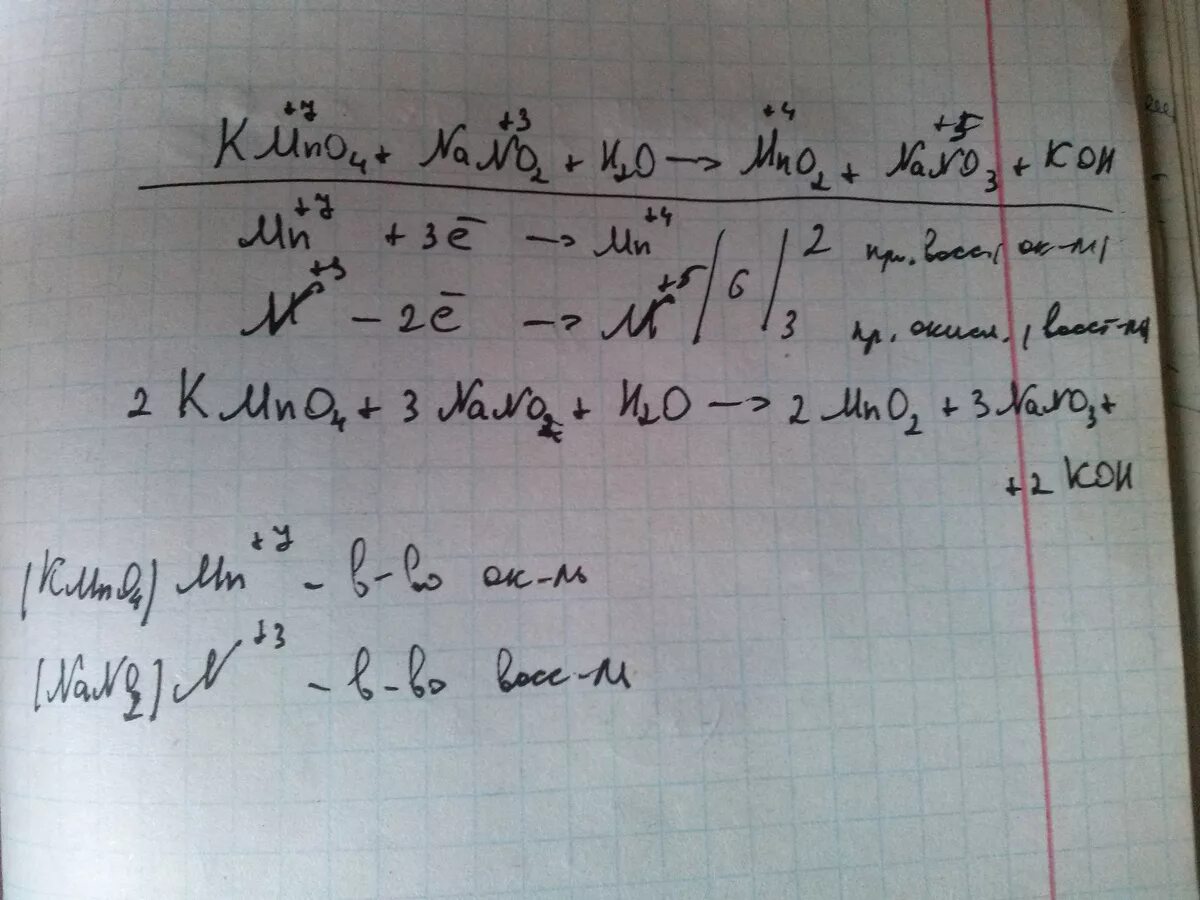 K Mn⁺⁷O₄ + NaN⁺³O₂ + H₂O → Mn⁺⁴O₂ + NaN⁺⁵O₃ + KOH
Mn⁺⁷ + 3ē → Mn⁺⁴ / 6 / 2 пр. восст, ок-ль,
N⁺³ − 2ē → N⁺⁵ / 3 пр. окисл., восст-ль
2 K MnO₄ + 3 NaNO₂ + H₂O → 2 MnO₂ + 3 NaNO₃ +
+ 2 KOH
(KMnO₄) Mn⁺⁷ – в-во ок-ль
(NaNO₂) N⁺³ – в-во восс-ль